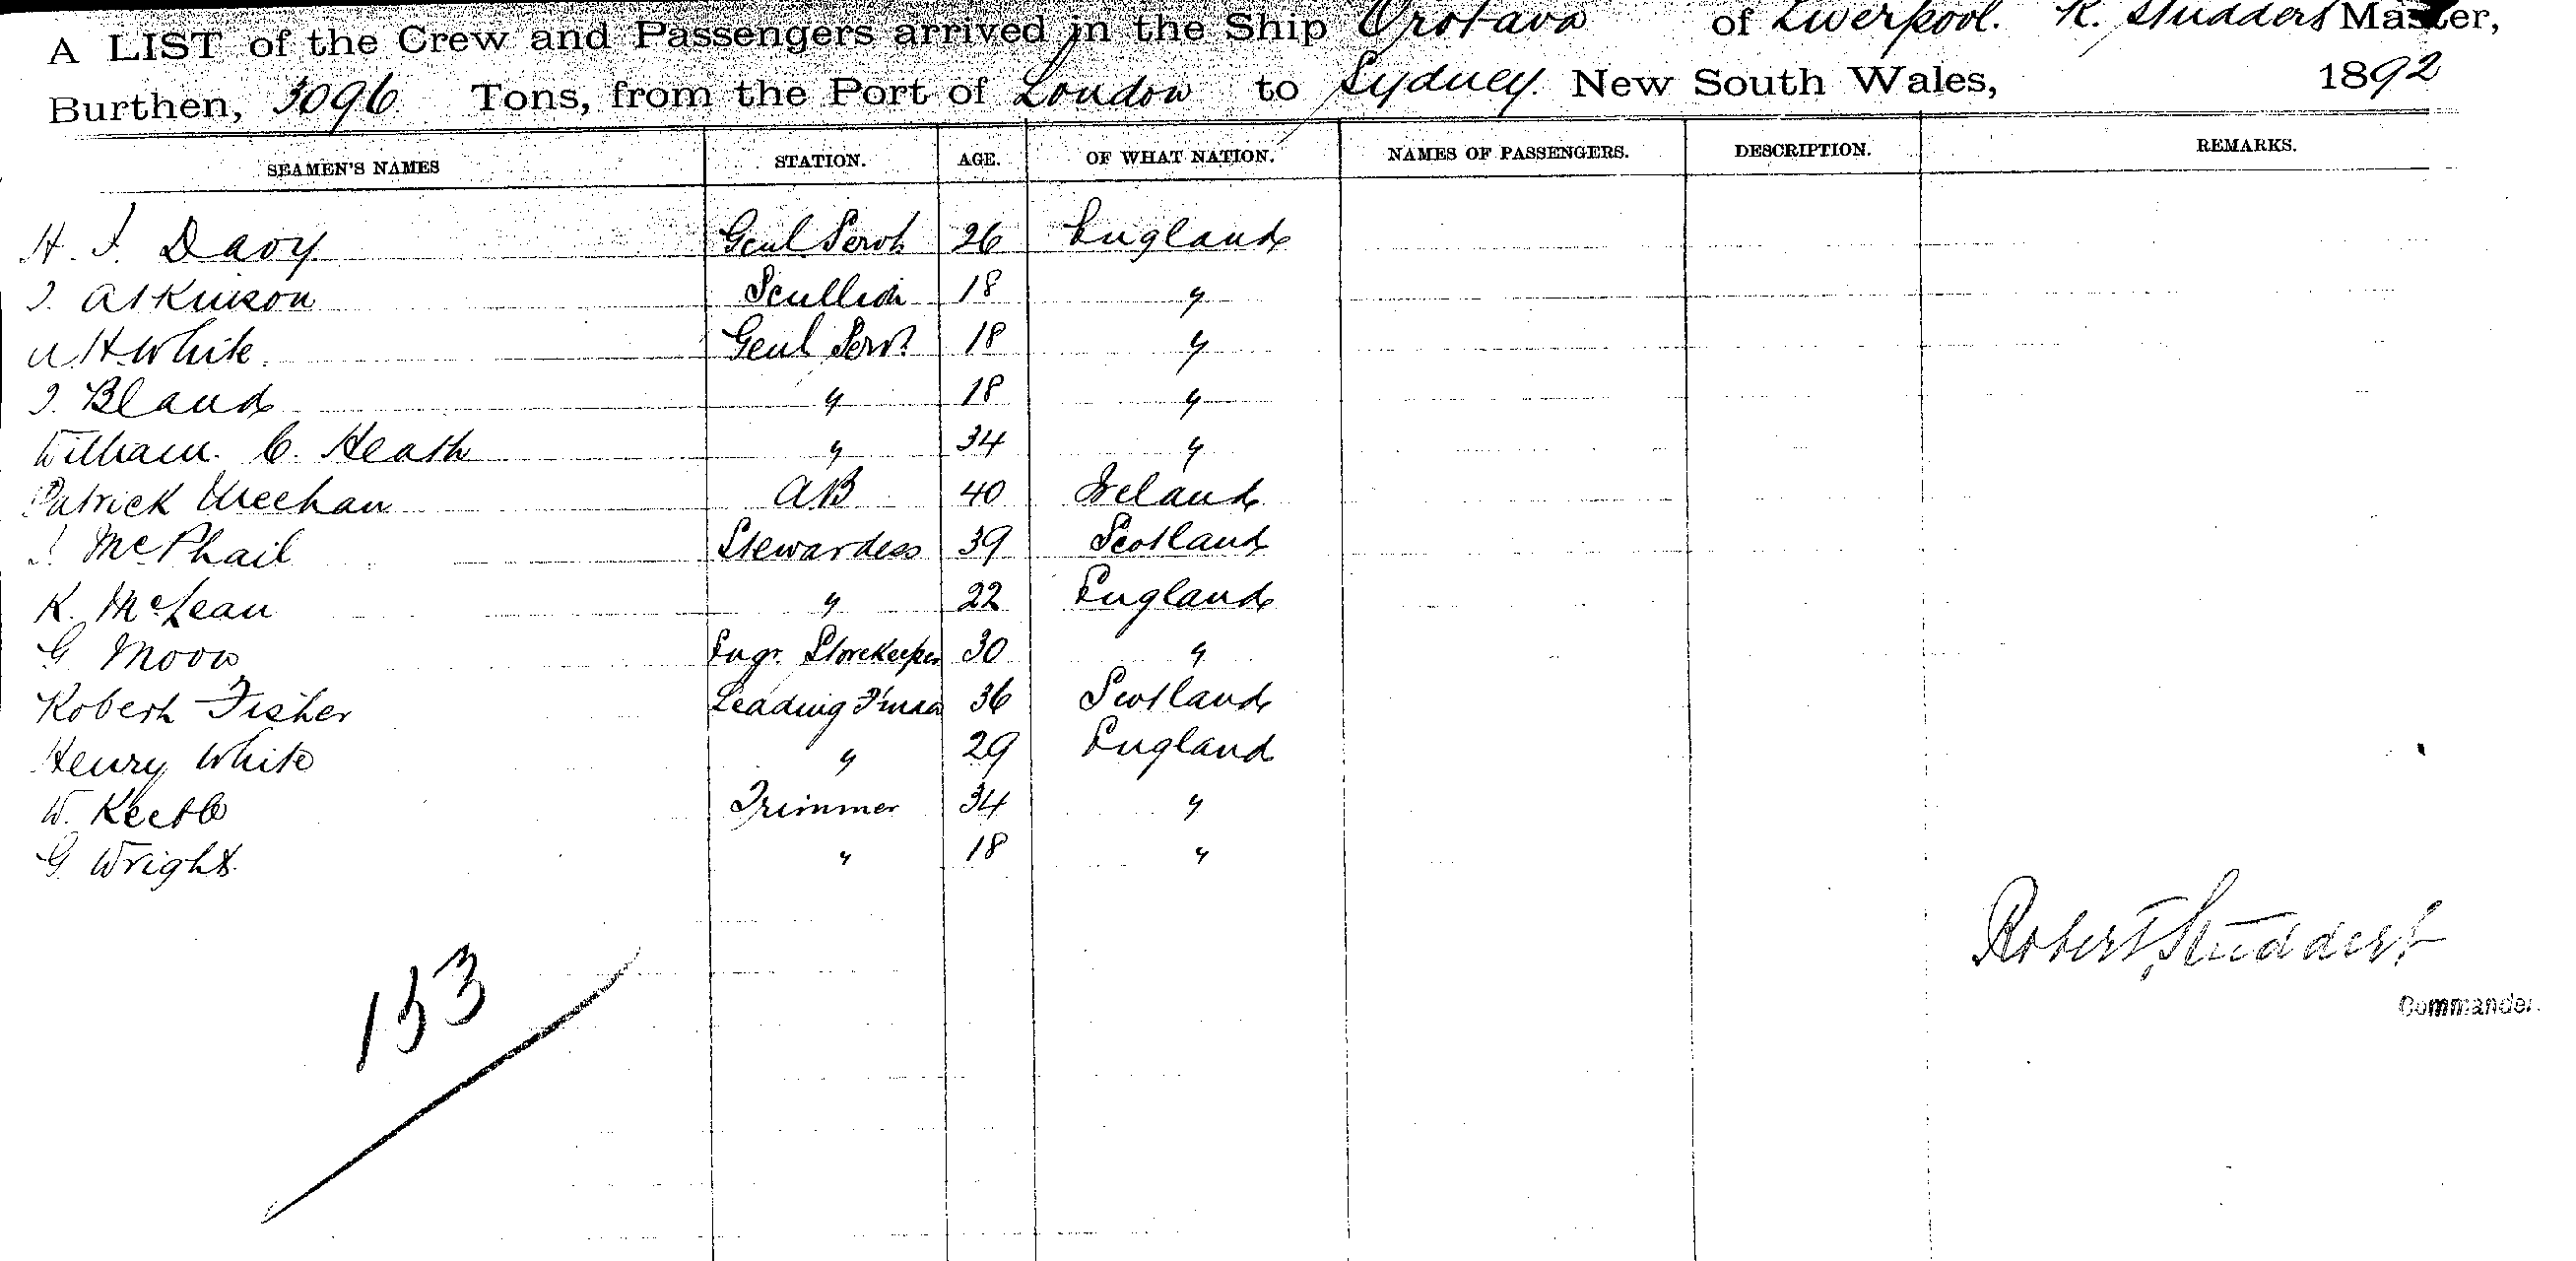 A LIST of the Crew and Passengers arrived in the Ship Orotava of Liverpool. R. Studdert Master,
Burthen, 3096 Tons, from the Port of London to Sydney. New South Wales, 1892
SEAMEN'S NAMES STATION. AGE. OF WHAT NATION. NAMES OF PASSENGERS. DESCRIPTION. REMARKS.
H. J. Davy Genl Servt 26 England
J. Atkinson Scullion 18 "
H. White Genl Servt 18 "
J. Bland " 18 "
William. C. Heath " 34 "
Patrick Meehan AB 40 Ireland
McPhail Stewardess 39 Scotland
K. McLean " 22 England
G Moon Engr. Storekeeper 30 "
Robert Fisher Leading F'man 36 Scotland
Henry White " 29 England
W. Keeble Trimmer 34 "
G. Wright " 18 "
Robert Studdert
Commander.
153